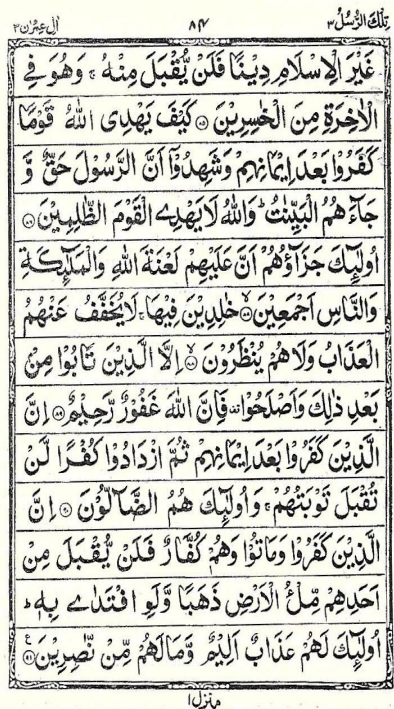 تِلْكَ الرُّسُلُ ٣ ٨٤ اٰل عِمْرٰن ٣
غَيْرَ الْاِسْلَامِ دِيْنًا فَلَنْ يُّقْبَلَ مِنْهُ ۚ وَهُوَ فِي
الْاٰخِرَةِ مِنَ الْخٰسِرِيْنَ ﴿۸۵﴾ كَيْفَ يَهْدِى اللّٰهُ قَوْمًا
كَفَرُوْا بَعْدَ اِيْمَانِهِمْ وَشَهِدُوْٓا اَنَّ الرَّسُوْلَ حَقٌّ وَّ
جَآءَهُمُ الْبَيِّنٰتُ ؕ وَاللّٰهُ لَا يَهْدِى الْقَوْمَ الظّٰلِمِيْنَ ﴿۸۶﴾
اُولٰٓئِكَ جَزَآؤُهُمْ اَنَّ عَلَيْهِمْ لَعْنَةَ اللّٰهِ وَالْمَلٰٓئِكَةِ
وَالنَّاسِ اَجْمَعِيْنَ ﴿۸۷﴾ۙ خٰلِدِيْنَ فِيْهَا ۚ لَا يُخَفَّفُ عَنْهُمُ
الْعَذَابُ وَلَا هُمْ يُنْظَرُوْنَ ﴿۸۸﴾ۙ اِلَّا الَّذِيْنَ تَابُوْا مِنْۢ
بَعْدِ ذٰلِكَ وَاَصْلَحُوْا ۟ فَاِنَّ اللّٰهَ غَفُوْرٌ رَّحِيْمٌ ﴿۸۹﴾ اِنَّ
الَّذِيْنَ كَفَرُوْا بَعْدَ اِيْمَانِهِمْ ثُمَّ ازْدَادُوْا كُفْرًا لَّنْ
تُقْبَلَ تَوْبَتُهُمْ ۚ وَاُولٰٓئِكَ هُمُ الضَّآلُّوْنَ ﴿۹۰﴾ اِنَّ
الَّذِيْنَ كَفَرُوْا وَمَاتُوْا وَهُمْ كُفَّارٌ فَلَنْ يُّقْبَلَ مِنْ
اَحَدِهِمْ مِّلْءُ الْاَرْضِ ذَهَبًا وَّلَوِ افْتَدٰى بِهٖ ؕ
اُولٰٓئِكَ لَهُمْ عَذَابٌ اَلِيْمٌ وَّمَا لَهُمْ مِّنْ نّٰصِرِيْنَ ﴿۹۱﴾ ع
منزل ١